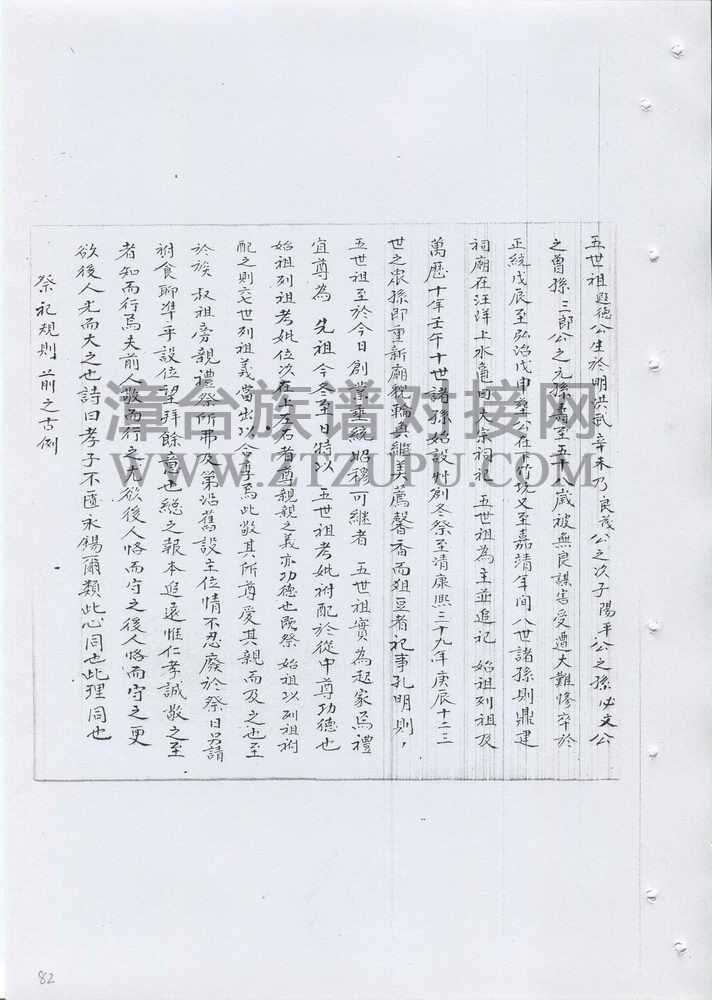 五世祖思德公生於明洪武辛未乃良茂公之次子陽平公之孫必文公
之曾孫三郎公之元孫壽至五十八歲被無良謀害受遭大難慘卒於
正統戊辰至弘治戊申塟公在下竹坑又至嘉靖年間八世諸孫則鼎建
祠廟在汪洋上水龜田大宗祠祀 五世祖為主並追祀 始祖列祖及
萬歷十年壬午十世諸孫始設州創冬祭至清康熙三十九年庚辰十二三
世之眾孫即重新廟貌輪奐繼美薦馨香而俎豆者祀事孔明則,
五世祖至於今日創業垂統昭穆可継者 五世祖實為起家焉禮
宜尊為 先祖今冬至日特以 五世祖考妣祔配於從中尊功德也
始祖列祖考妣位次在上左右者尊親親之義亦功德也既祭 始祖以列祖祔
配之則五世列祖義當出以合尊焉此敬其所尊愛其親而及之也至
於族 叔祖旁親禮祭所弗及第沿舊設主位情不忍廢於祭日另請
祔食聊準乎設位望拜餘意也總之報本追遠惟仁孝誠敬之至
者知而行焉夫前人敬而行之尤欲後人恪而守之後人恪而守之更
欲後人光而大之也詩曰孝子不匱永錫爾類此心同也此理同也
祭祀規則 前之古例
漳台族谱对接网
WWW.ZTZUPU.COM
82